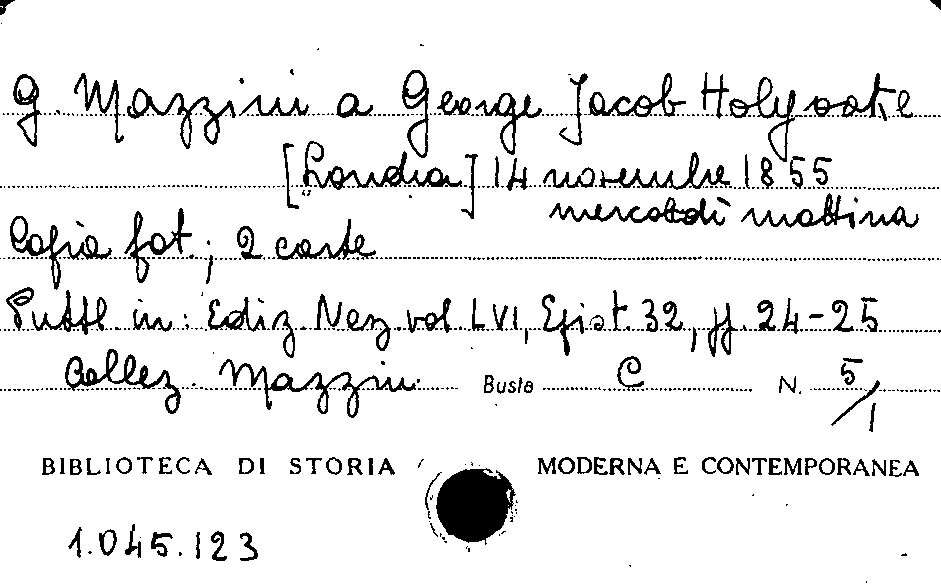 G. Mazzini a George Jacob Holyoake
[Londra] 14 novembre 1855
mercoledì mattina
Copia fot.; 2 carte
Pubbl. in: Ediz. Naz. vol. LVI, Epist. 32, pp. 24-25
Collez. Mazzini Busta C N. 5/1
BIBLIOTECA DI STORIA MODERNA E CONTEMPORANEA
1.045.123